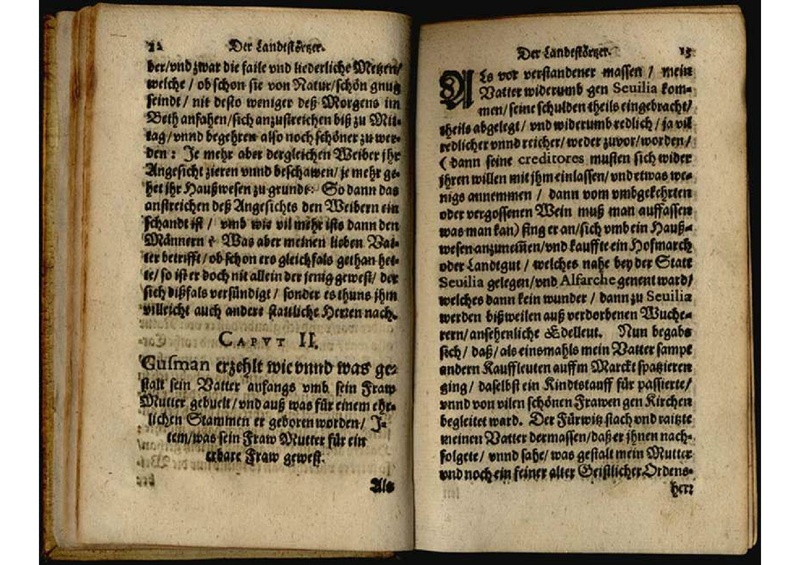 12 Der Landtstörtzer.
ber/vnd zwar die faile vnd liederliche Metzen/
welche / ob schon sie von Natur/schön gnug
seindt / nit desto weniger deß Morgens im
Beth anfahen/sich anzustreichen biß zu Mit-
tag/vnnd begehren also noch schöner zu wer-
den: Je mehr aber dergleichen Weiber jhr
Angesicht zieren vnnd beschawen/je mehr ge-
het jhr Haußwesen zu grundt: So dann das
anstreichen deß Angesichts den Weibern ein
schandt ist / vmb wie vil mehr ists dann den
Männern? Was aber meinen lieben Vat-
ter betrifft / ob schon ers gleichfals gethan het-
te/so ist er doch nit allein der jenig gewest/ der
sich dißfals versündigt / sonder es thuns jhm
villeicht auch andere stattliche Herren nach.
CAPVT II.
Gusman erzehlt wie vnnd was ge-
stalt sein Vatter anfangs vmb sein Fraw
Mutter gebuelt/vnd auß was für einem ehr-
lichen Stammen er geboren worden/ J-
tem/was sein Fraw Mutter für ein
erbare Fraw gewest.
Als
Der Landtstörtzer. 13
ALs vor verstandener massen / mein
Vatter widerumb gen Seuilia kom-
men/seine schulden theils eingebracht/
theils abgelegt / vnd widerumb redlich / ja vil
redlicher vnnd reicher/weder zuvor/worden/
(dann seine creditores musten sich wider
jhren willen mit jhm einlassen/vnd etwas we-
nigs annemmen / dann vom vmbgekehrten
oder vergossenen Wein muß man auffassen
was man kan) fing er an/sich vmb ein Hauß-
wesen anzunem̃en/vnd kauffte ein Hofmarch
oder Landtgut / welches nahe bey der Statt
Seuilia gelegen/vnd Alfarche genent ward/
welches dann kein wunder / dann zu Seuilia
werden bißweilen auß verdorbenen Wuche-
rern/ansehenliche Edelleut. Nun begabs
sich / daß/als einsmahls mein Vatter sampt
andern Kauffleuten auffm Marckt spatzieren
ging / daselbst ein Kindtstauff für passierte/
vnnd von vilen schönen Frawen gen Kirchen
begleitet ward. Der Fürwitz stach vnd raitzte
meinen Vatter dermassen/daß er jhnen nach-
folgete / vnnd sahe/was gestalt mein Mutter
vnd noch ein feiner alter Geistlicher Ordens-
herr